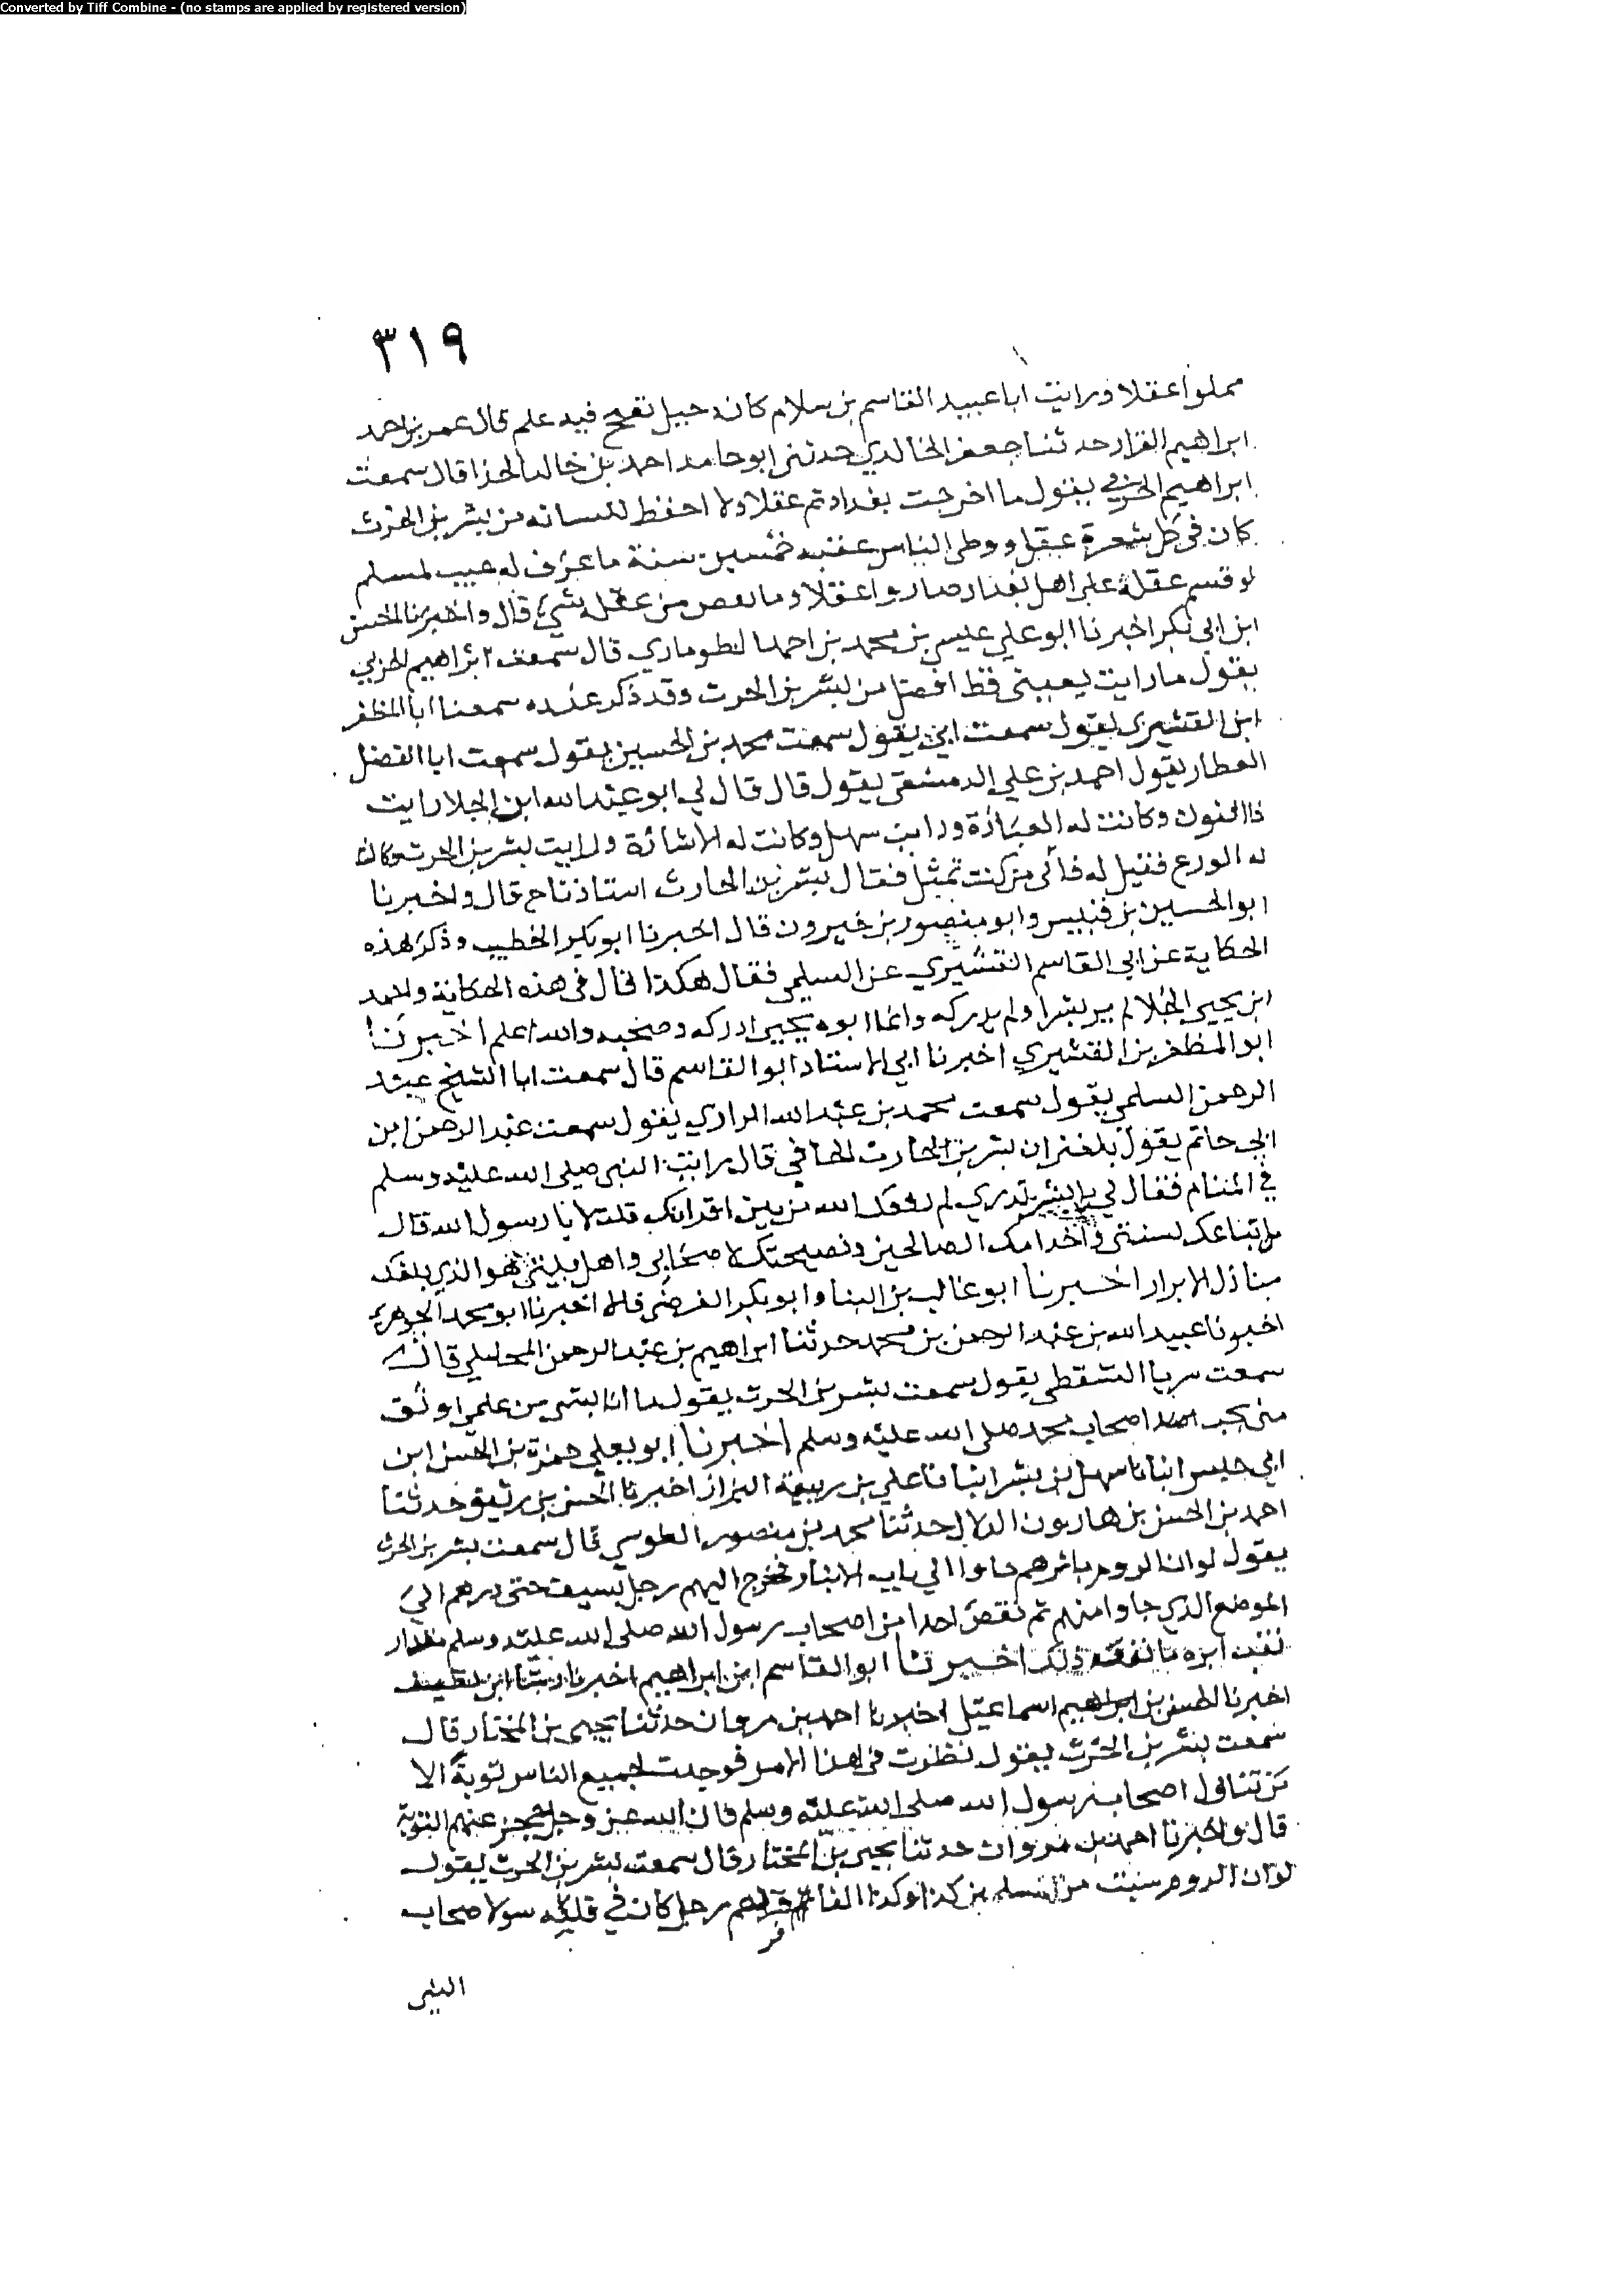 Converted by Tiff Combine - (no stamps are applied by registered version)
٣١٩
مملوا عقلا ورايت ابا عبيد القاسم بن سلام كانه جبيل نفخ فيه علم قال عمر بن احمد
ابراهيم القزار حدثنا جعفر الخالدي حدثني ابو حامد احمد بن خالد الحذا قال سمعت
ابراهيم الحربي يقول ما اخرجت بغداد تم عقلا ولا احفظ للسانه من بشر بن الحرث
كان في كل شعرة عقل ووطى الناس عقبه خمسين سنة ما عرف له عيب لمسلم
لو قسم عقله على اهل بغداد صاروا عقلا وما نقص من عقله شي قال واخبرنا الحسن
ابن ابي بكر اخبرنا ابو علي عيسى بن محمد بن احمد الطوماري قال سمعت ابراهيم الحربي
يقول ما رايت بعيني قط افضل من بشر بن الحرث وقد ذكر عنده سمعنا ابا المظفر
ابن القشيري يقول سمعت ابي يقول سمعت محمد بن الحسين يقول سمعت ابا الفضل
العطار يقول احمد بن علي الدمشقي يقول قال قال لي ابو عبد الله ابن الجلا رايت
ذا النون وكانت له العبارة ورايت سهل وكانت له الاشارة ورايت بشر بن الحرث وكان
له الورع فقيل له فالى من كنت تميل فقال بشر بن الحارث استاذنا ح قال واخبرنا
ابو الحسين بن قبيس وابو منصور بن خيرون قال اخبرنا ابو بكر الخطيب وذكر هذه
الحكاية عن ابي القاسم القشيري عن السلمي فقال هكذا قال في هذه الحكاية واحمد
ابن يحيى الجلا لم ير بشرا ولم يدركه وانما ابوه يحيى ادركه وصحبه والله اعلم اخبرنا
ابو المظفر بن القشيري اخبرنا ابي الاستاد ابو القاسم قال سمعت ابا الشيخ عبد
الرحمن السلمي يقول سمعت محمد بن عبد الله الرازي يقول سمعت عبد الرحمن ابن
ابي حاتم يقول بلغني ان بشر بن الحارث الحافي قال رايت النبي صلى الله عليه وسلم
في المنام فقال لي يا بشر تدري لم رفعك الله من بين اقرانك قلت لا يا رسول الله قال
باتباعك لسنتي واخدامك الصالحين ونصيحتك لاصحابي واهل بيتي هو الذي بلغك
منازل الابرار اخبرنا ابو غالب بن البنا وابو بكر الفرضي قالا اخبرنا ابو محمد الجوهري
اخبرنا عبيد الله بن عبد الرحمن بن محمد حدثنا ابراهيم بن عبد الرحمن المحاملي قال
سمعت سريا السقطي يقول سمعت بشر بن الحرث يقول ما انا بشى من علمي اوثق
مني بحب اصحاب محمد صلى الله عليه وسلم اخبرنا ابو يعلي حمزة بن الحسن ابن
ابي حبيس انبانا سهل بن بشر انبانا علي بن ربيعة البزار اخبرنا الحسن بن رشيق حدثنا
احمد بن الحسن بن هارون الدلال حدثنا محمد بن منصور الطوسي قال سمعت بشر بن الحرث
يقول لو ان الروم باثرهم جاوا الي باب الانبار فخرج اليهم رجل بسيف حتى ردهم الي
الموضع الذي جاوا منهم ثم نقص احدا من اصحاب رسول الله صلى الله عليه وسلم مقدار
نقب ابره ما نفعه ذلك اخبرنا ابو القاسم ابن ابراهيم اخبرنا رشا ابن نظيف
اخبرنا الحسن بن اسماعيل اخبرنا احمد بن مروان حدثنا يحيى بن المختار قال
سمعت بشر بن الحرث يقول نظرت في هذا الامر فوجدت لجميع الناس توبة الا
من تناول اصحاب رسول الله صلى الله عليه وسلم فان الله عز وجل حجز عنهم التوبة
قال واخبرنا احمد بن مروان حدثنا يحيى بن المختار قال سمعت بشر بن الحرث يقول
لو ان الروم سبت من المسلمين كذا وكذا الفا ثم رجل كان في قلبه سو لاصحاب
النبي